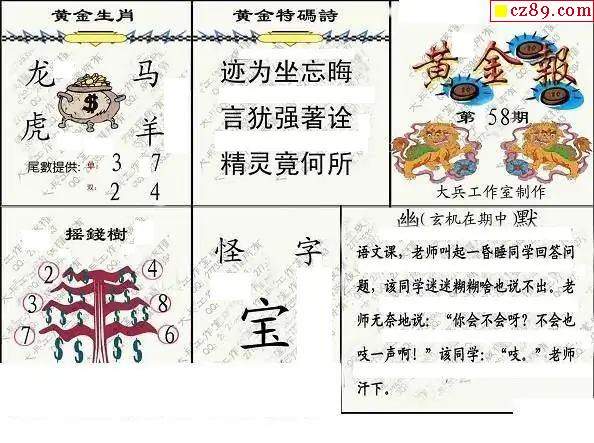 cz89.com
黄金生肖
龙 马
虎 羊
$
尾數提供: 单: 3 7
双: 2 4
黄金特碼詩
迹为坐忘晦
言犹强著诠
精灵竟何所
黄金報
第58期
大兵工作室制作
摇錢樹
2 4
3 8
7 6
怪字
宝
幽(玄机在期中)默
语文课，老师叫起一昏睡同学回答问
题，该同学迷迷糊糊啥也说不出。老
师无奈地说：“你会不会呀？不会也
吱一声啊！”该同学：“吱。”老师
汗下。